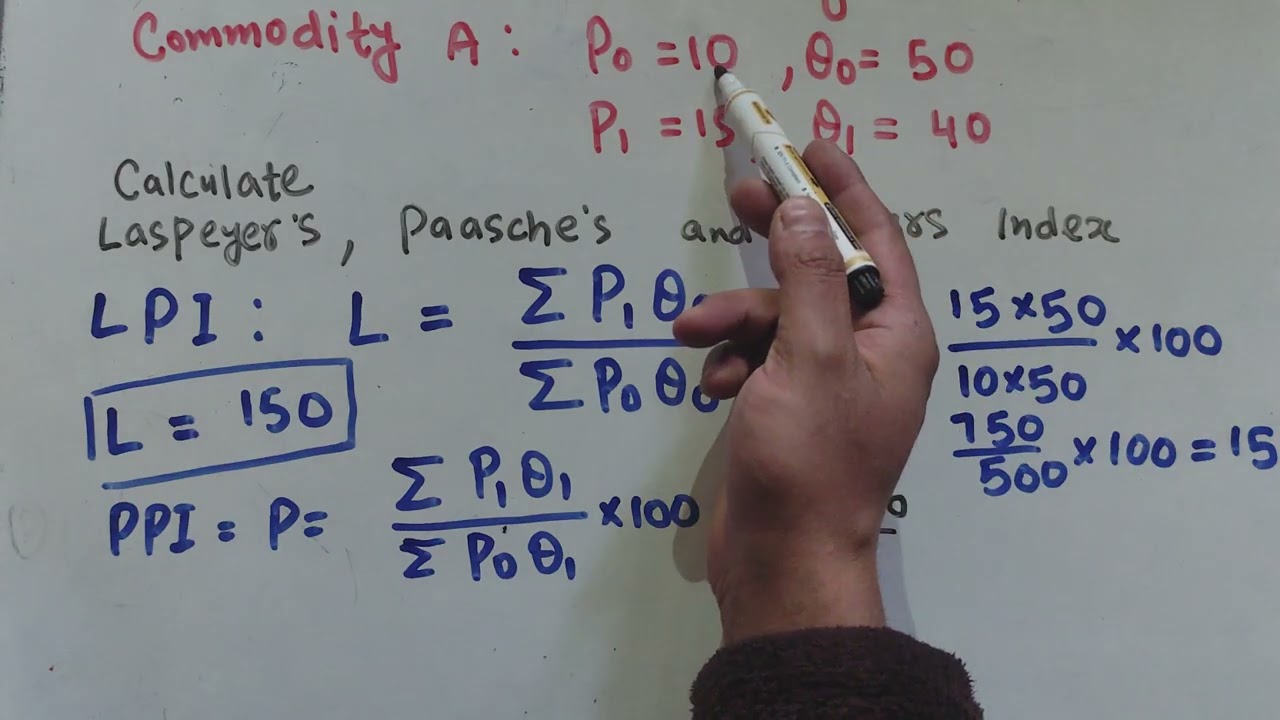 Commodity A: P₀ = 10, θ₀ = 50
P₁ = 15, θ₁ = 40
Calculate
Laspeyer's, Paasche's and Index
LPI: L = Σ P₁ θ₀ / Σ P₀ θ₀ 15×50 / 10×50 ×100
L = 150 750 / 500 ×100 = 15
PPI = P = Σ P₁ θ₁ / Σ P₀ θ₁ ×100